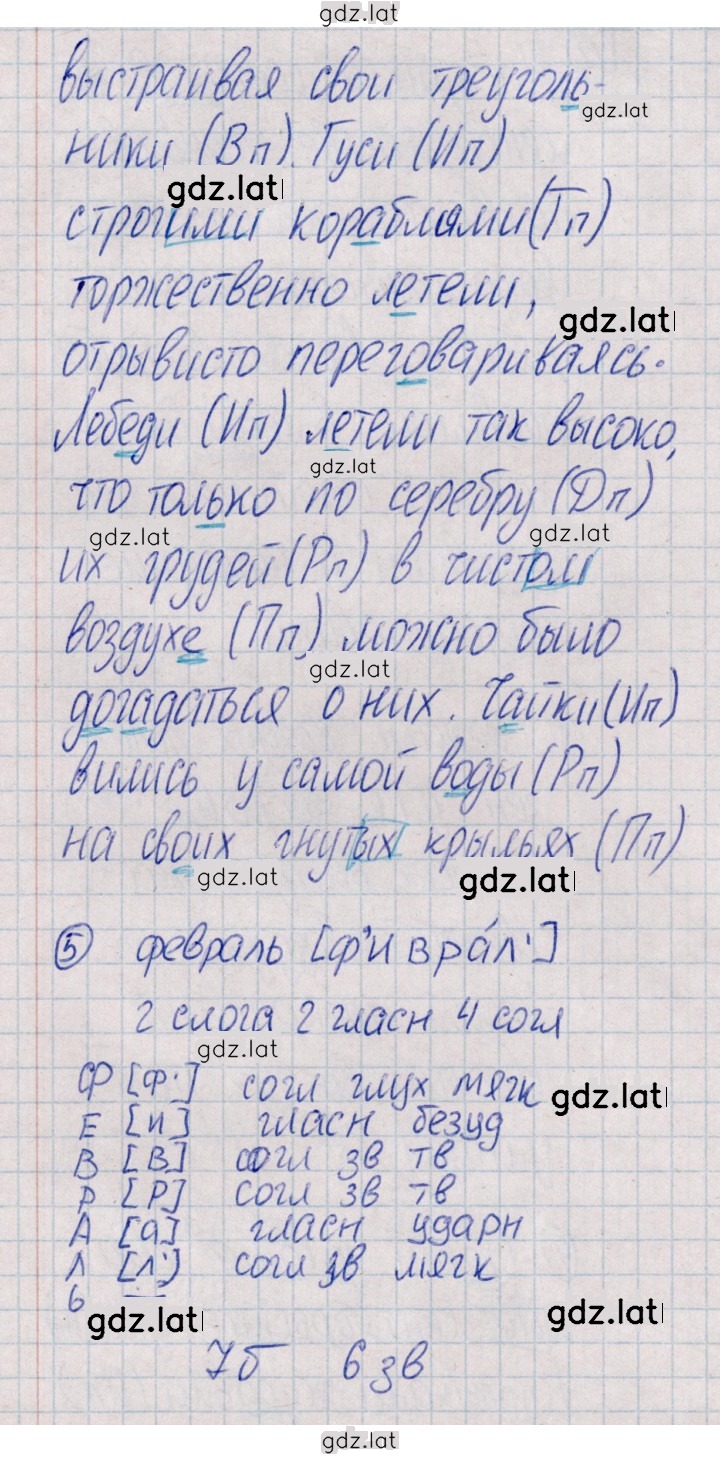 gdz.lat
выстраивая свои треуголь-
gdz.lat
ники (Вп). Гуси (Ип)
gdz.lat
строгими кораблями (Тп)
торжественно летели,
gdz.lat
отрывисто переговариваясь.
Лебеди (Ип) летели так высоко,
gdz.lat
что только по серебру (Дп)
gdz.lat gdz.lat
их грудей (Рп) в чистом
воздухе (Пп) можно было
gdz.lat
догадаться о них. Чайки (Ип)
вились у самой воды (Рп)
на своих гнутых крыльях (Пп)
gdz.lat gdz.lat
5 февраль [ф'иврáл']
2 слога 2 гласн 4 согл
gdz.lat
Ф [ф'] согл глух мягк
gdz.lat
Е [и] гласн безуд
В [в] согл зв тв
Р [р] согл зв тв
А [а] гласн ударн
Л [л') согл зв мягк
ь —
gdz.lat gdz.lat
7б 6 зв
gdz.lat